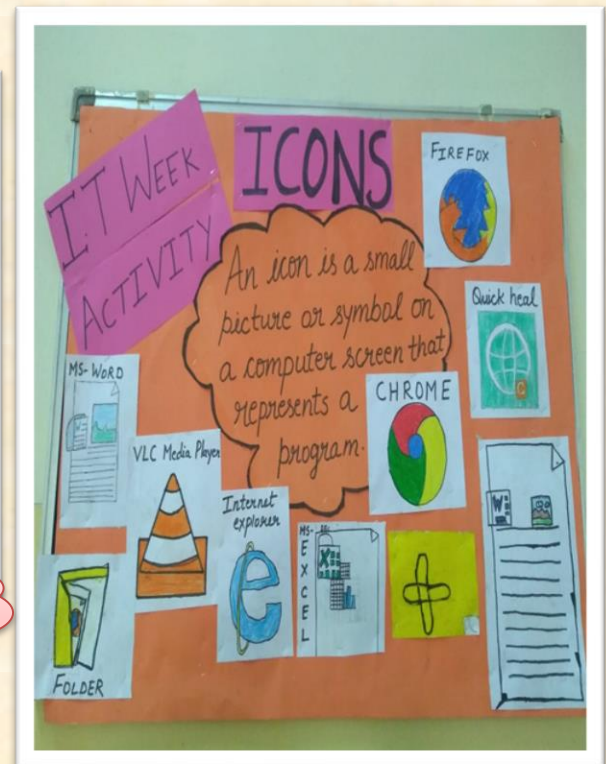 I.T WEEK
ACTIVITY
ICONS
An icon is a small
picture or symbol on
a computer screen that
represents a
program.
FIREFOX
Quick heal
C
MS-WORD
VLC Media Player
CHROME
Internet
explorer
MS-
EXCEL
X
W
W
FOLDER